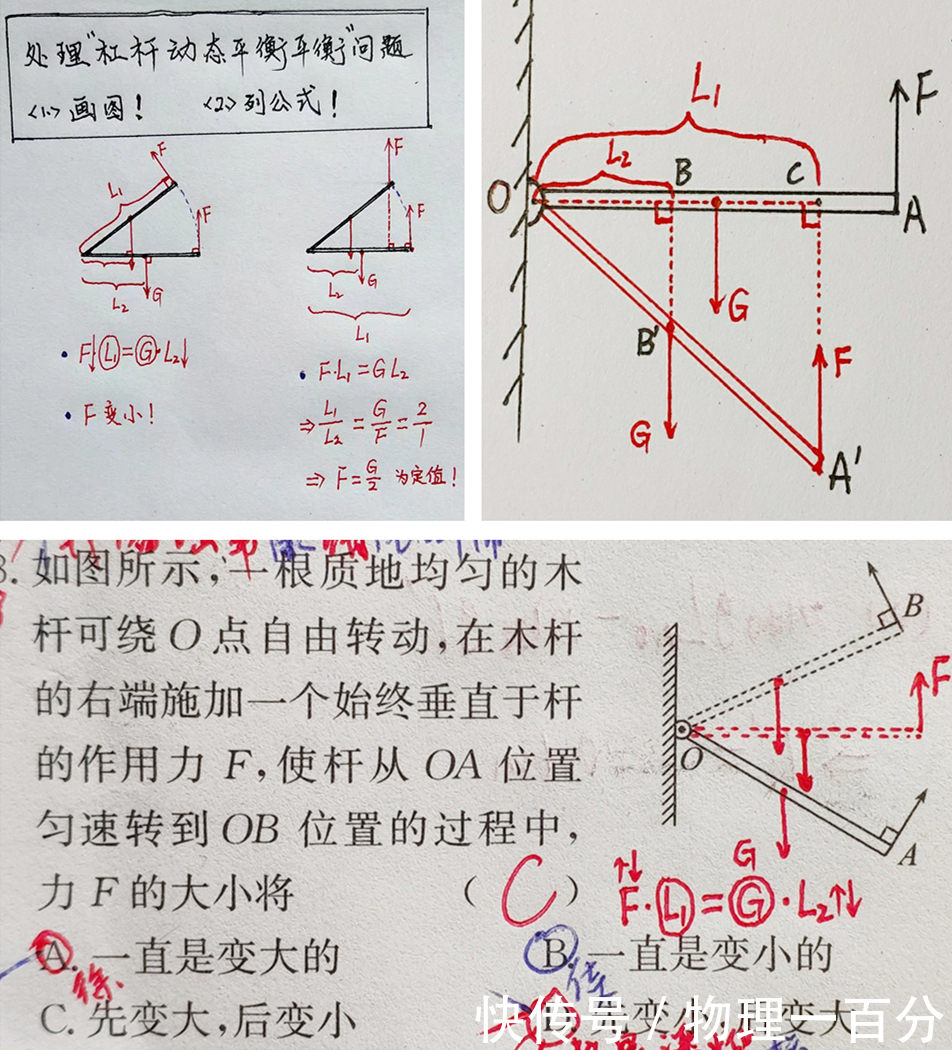 处理"杠杆动态平衡平衡"问题
<1>画图! <2>列公式!
F
L₁
F
L₂
G
F↓L₁=G·L₂↓
F变小!
F
F
L₂
G
L₁
F·L₁=GL₂
⇒L₁/L₂=G/F=2/1
⇒F=G/2 为定值!
L₁
F
L₂
B
C
O
A
G
B'
F
G
A'
3.如图所示,一根质地均匀的木
杆可绕O点自由转动,在木杆
的右端施加一个始终垂直于杆
的作用力F,使杆从OA位置
匀速转到OB位置的过程中,
力F的大小将 (C)
A.一直是变大的 B.一直是变小的
C.先变大,后变小
B
F
O
A
G
↑↓F·L₁=G·L₂↑↓
徐
快传号/物理一百分